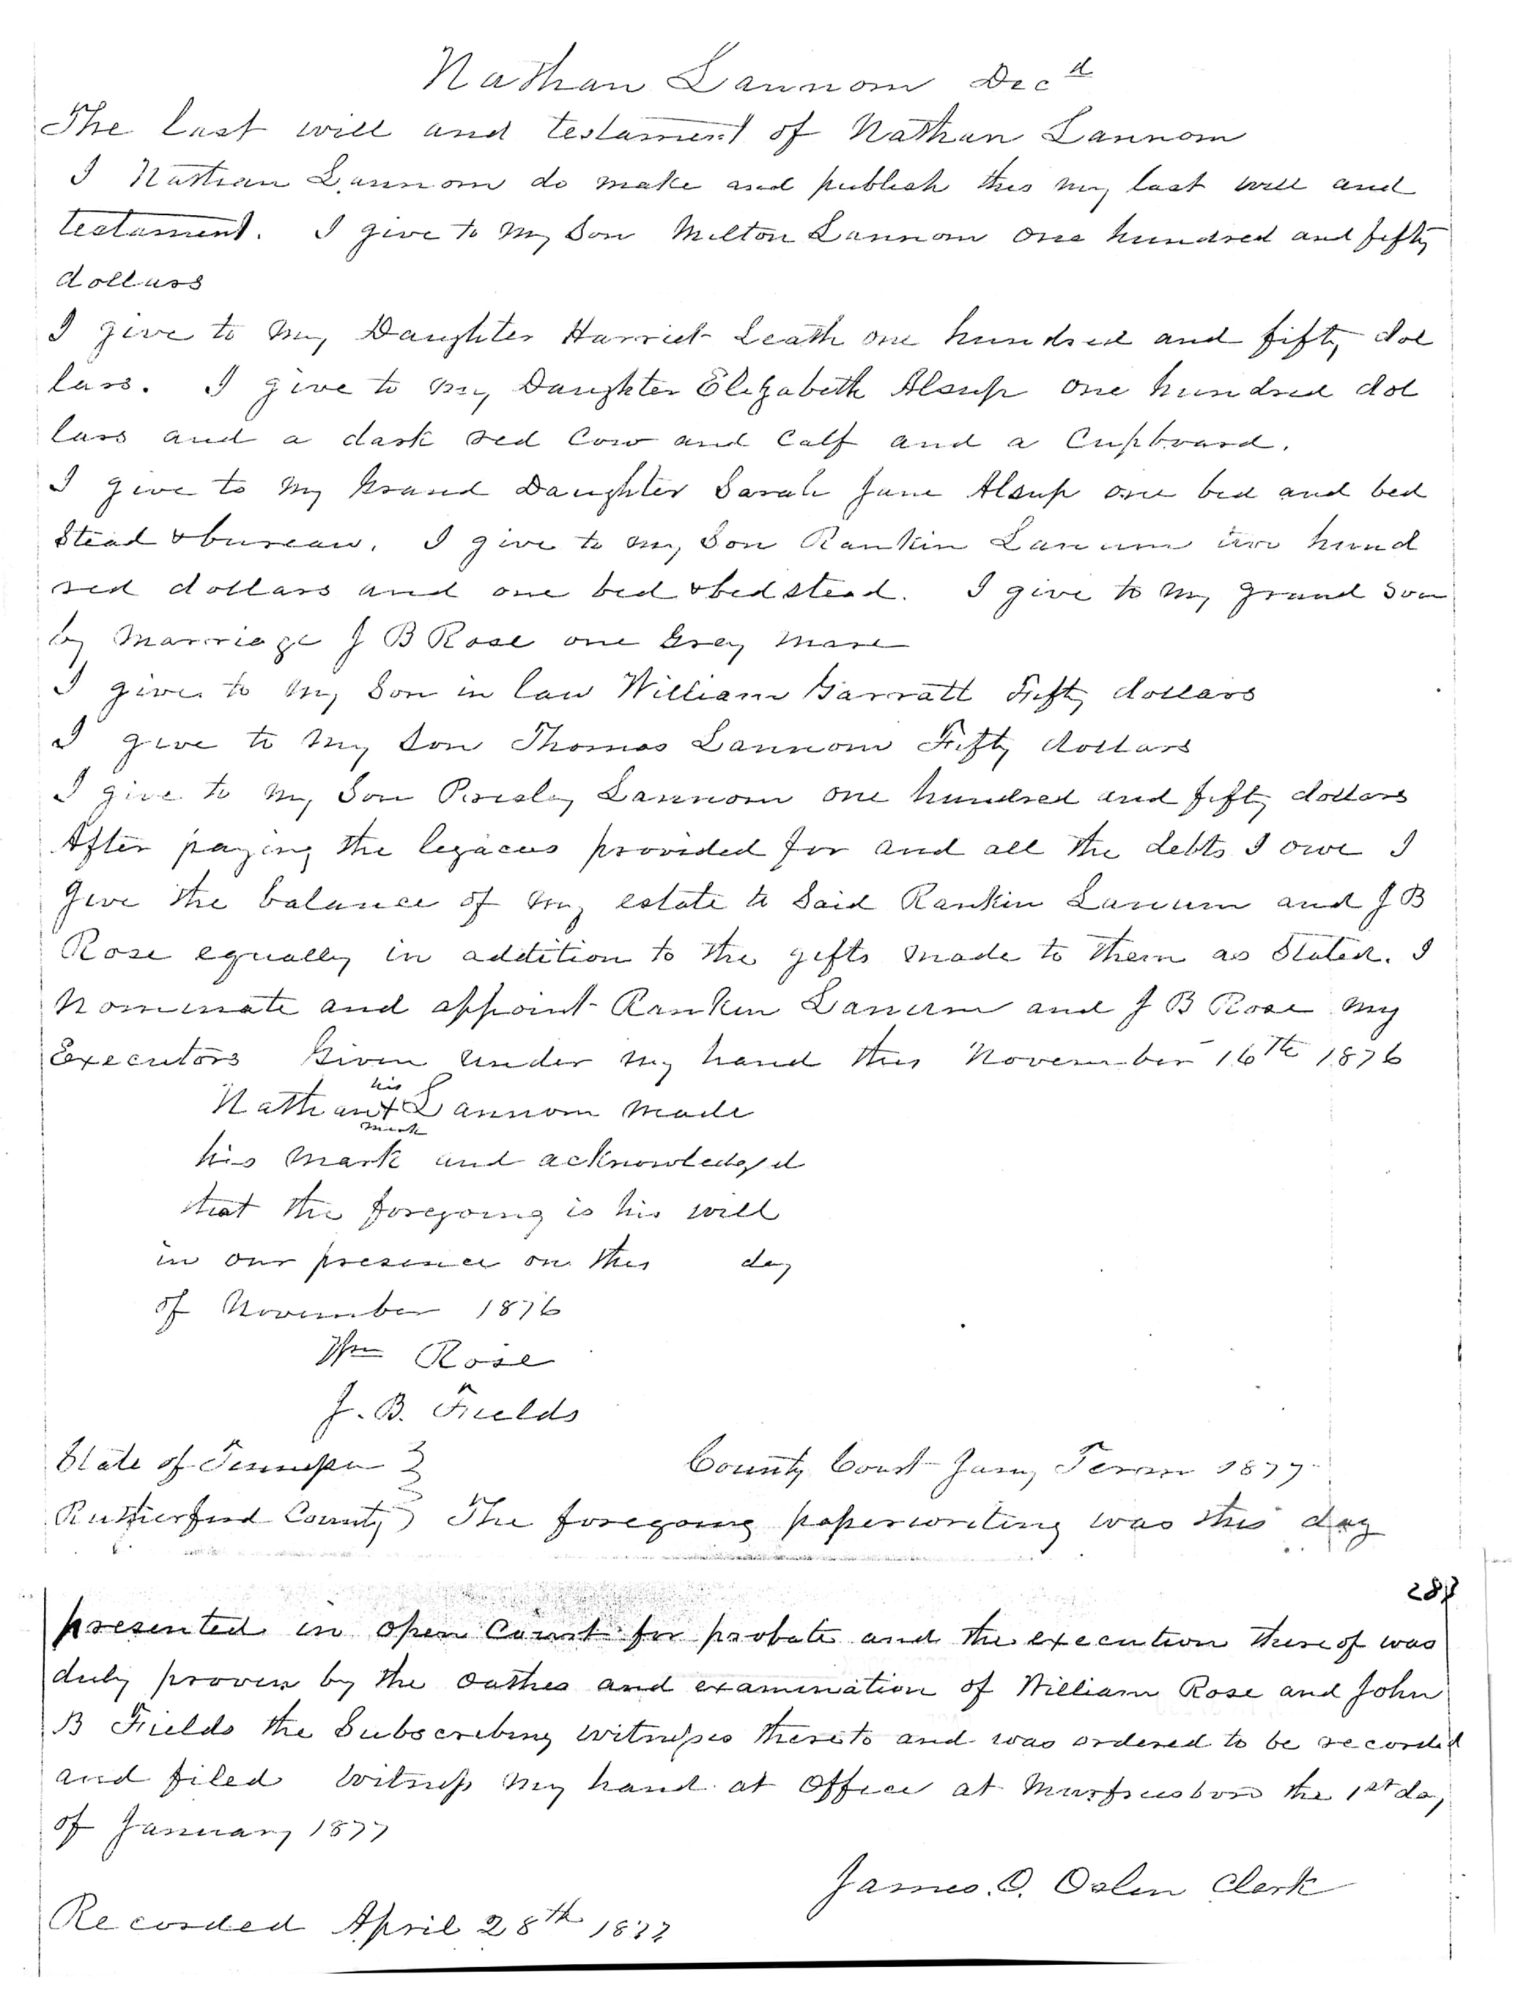 Nathan Lannom Decd
The last will and testament of Nathan Lannom
I Nathan Lannom do make and publish this my last will and
testament. I give to my Son Milton Lannom one hundred and fifty
dollars
I give to my Daughter Harriet Leath one hundred and fifty dol
lars. I give to my Daughter Elizabeth Alsup one hundred dol
lars and a dark red Cow and Calf and a Cupboard.
I give to my Grand Daughter Sarah Jane Alsup one bed and bed
Stead & bureau. I give to my Son Rankin Lanum two hund
red dollars and one bed & bedstead. I give to my grand Son
by Marriage J B Rose one Grey mare
I give to my Son in law William Garratt Fifty dollars
I give to my Son Thomas Lannom Fifty dollars
I give to my Son Presley Lannom one hundred and fifty dollars
After paying the legacies provided for and all the debts I owe I
Give the balance of my estate to Said Rankin Lanum and J B
Rose equally in addition to the gifts made to them as Stated. I
Nominate and appoint Rankin Lanum and J B Rose my
Executors Given under my hand this November 16th 1876
his
Nathan + Lannom made
mark
his mark and acknowledged
that the foregoing is his will
in our presence on this day
of November 1876
Wm Rose
J. B. Fields
State of Tennessee } County Court Jany Term 1877
Rutherford County } The foregoing paperwriting was this day
287
presented in open Court for probate and the execution thereof was
duly proven by the oathes and examination of William Rose and John
B Fields the Subscribing witnesses thereto and was ordered to be recorded
and filed Witness my hand at Office at Murfreesboro the 1st day
of January 1877
James. O. Oslin Clerk
Recorded April 28th 1877